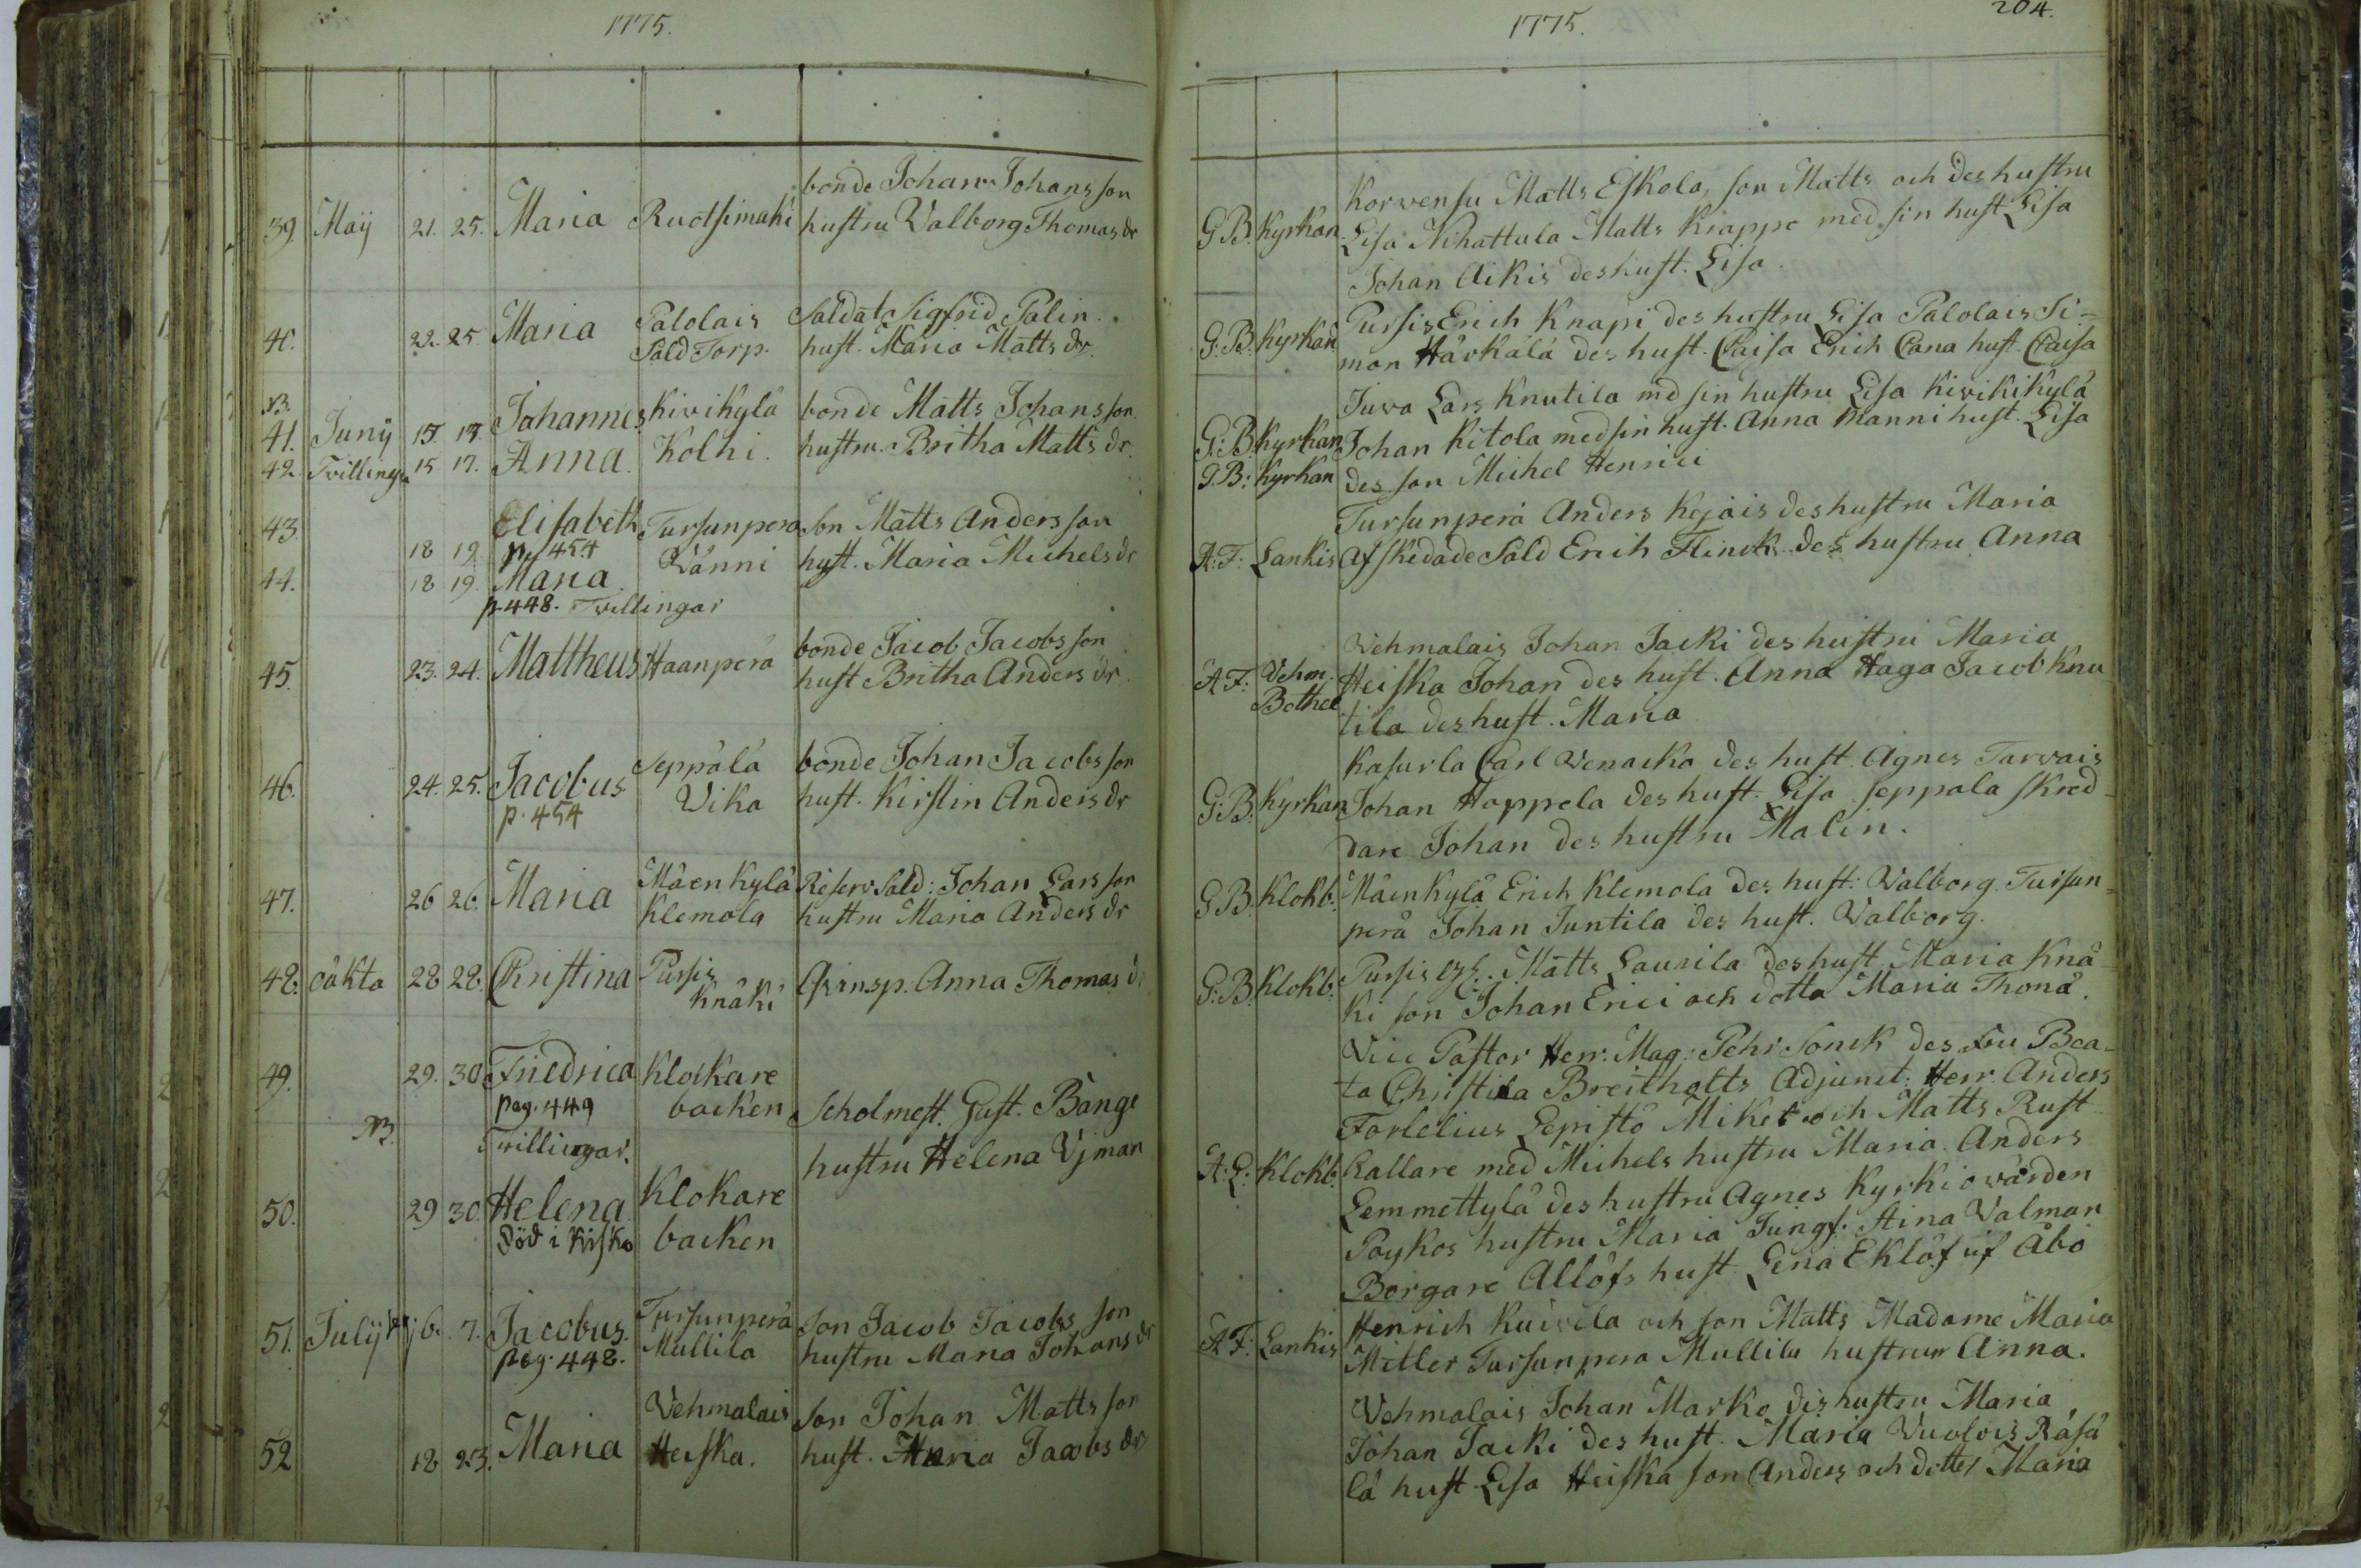 1775.
39. Maÿ 21. 25. Maria Ruotsimäki
bonde Johan Johans son
hustru Valborg Thomas dr
40. 22. 25 Maria
Palolais
Sald Torp.
Saldat Sigfrid Palin.
hust. Maria Matts dr.
NB.
41. Junÿ 15. 17. Johannes Kivikylä bonde Matts Johans son
42. Tvillingar 15. 17. Anna. Kolhi. hustru Britha Matts dr.
43. 18 19 Elisabeth Tursunperä son Matts Anders son
p. 454 Vänni hust. Maria Michels dr
44. 18 19. Maria
p. 448. Tvillingar
45. 23. 24. Mattheus Haanperä
bonde Jacob Jacobs son
hust Britha Anders dr.
46. 24. 25. Jacobus
p. 454
Seppälä
Vika
bonde Johan Jacobs son
hust. Kirstin Anders dr
47. 26 26. Maria
Mäenkylä
Klemola
Reserv Sald: Johan Lars son
hustru Maria Anders dr
48. oäkta 28 28. Christina
Pursis
Knäki
Qvinsp. Anna Thomas dr
49. 29. 30 Friedrica Klockare
pag. 449 backen
NB. Tvillingar.
Scholmest. Gust. Bånge
hustru Helena Ujman
50. 29 30. Helena
död i Kisko
Klokare
backen
51. Julÿ 6. 7. Jacobus.
pag. 448.
Tursunperä
Mullila
Son Jacob Jacobs son
hustru Maria Johans dr
52 18 23. Maria
Vehmalais
Heiska.
son Johan Matts son
hust. Maria Jacobs dr
1775.
204.
G.B. Kyrkan
Korwensu Matts Eskola, son Matts och des hustru
Lisa Nihattula Matts Krappe med sin hust Lisa
Johan Aikis des hust. Lisa.
G:B: Kyrkan
Pursis Erich Knapi des hustru Lisa Palolais Si-
mon Härkälä des hust. Caisa Erich Cana hust. Caisa
G:B: Kyrkan
G.B: Kyrkan
Juva Lars Knutila med sin hustru Lisa Kivikikylä
Johan Kitola med sin hust. Anna Manni hust. Lisa
des son Michel Henrici
A:F: Lankis
Tursunperä Anders Kejais des hustru Maria
Afskedade Sald Erich Flinck des hustru Anna
A F: Vehm.
Bothel
Vehmalais Johan Jacki des hustru Maria
Heiska Johan des hust. Anna Haga Jacob Knu
tila des hust. Maria
G:B: Kyrkan
Kasurla Carl Venacka des hust. Agnes Tarvais
Johan Hoppela des hust. Lisa Seppala skred-
dare Johan des hustru Malin.
G B. Klokb.
Mäenkylä Erich Klemola des hust: Valborg. Tursun-
perä Johan Juntila des hust. Valborg.
G:B. Klokb.
Pursis Matts Laurila des hust. Maria Knä-
ki son Johan Erici och dotta Maria Thomä.
A:L: Klokb.
Vice Pastor Herr. Mag: Pehr Sonck des Fru Bea-
ta Christina Breitholts Adjunct. Herr. Anders
Forlelius Lepistö Mikel och Matts Rust
hallare med Michels hustru Maria. Anders
Lemmettylä des hustru Agnes Kyrkiovärden
Poykos hustru Maria Jungf. Stina Valman
Borgare Allöfs hust. Lena Eklöf uf Åbo
A F: Lankis
Henrich Kuivela och son Matts Madame Maria
Miller Tursunpera Mullila hustrun Anna.
Vehmalais Johan Marko des hustru Maria,
Johan Jacki des hust. Maria Vuolois Räsä
lä hust Lisa Heiska son Anders och dotter Maria